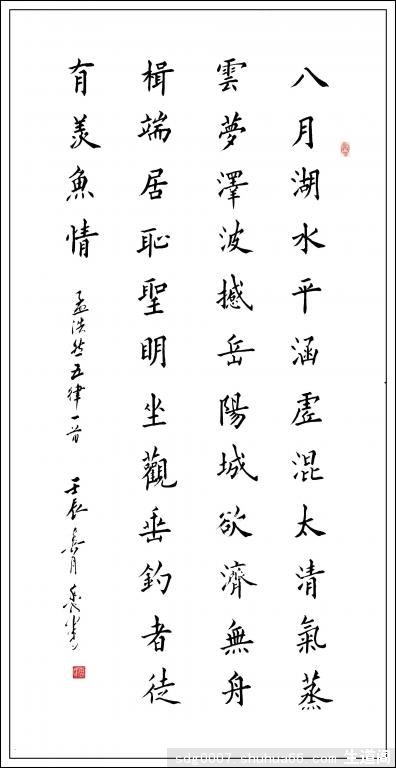 八月湖水平涵虛混太清氣蒸
雲夢澤波撼岳陽城欲濟無舟
楫端居恥聖明坐觀垂釣者徒
有羨魚情
孟浩然五律一首 壬辰 月
sdg0007.shuhua66.com 生道阁